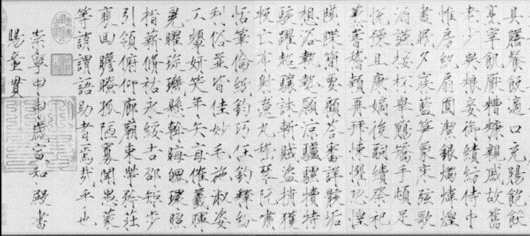 具膳餐飯適口充腸飽飫
烹宰飢厭糟糠親戚故舊
老少異糧妾御績紡侍巾
帷房紈扇圓潔銀燭煒煌
晝眠夕寐藍笋象床弦歌
酒讌接杯舉觴矯手頓足
悅豫且康嫡後嗣續祭祀
蒸嘗稽顙再拜悚懼恐惶
牋牒簡要顧答審詳骸垢
想浴執熱願涼驢騾犢特
駭躍超驤誅斬賊盜捕獲
叛亡布射遼丸嵇琴阮嘯
恬筆倫紙鈞巧任釣釋紛
利俗並皆佳妙毛施淑姿
工顰妍笑年矢每催羲暉
朗曜琁璣懸斡晦魄環照
指薪脩祜永綏吉劭矩步
引領俯仰廊廟束帶矜莊
徘徊瞻眺孤陋寡聞愚蒙
等誚謂語助者焉哉乎也
崇寧甲申歲宣和殿書
賜童貫